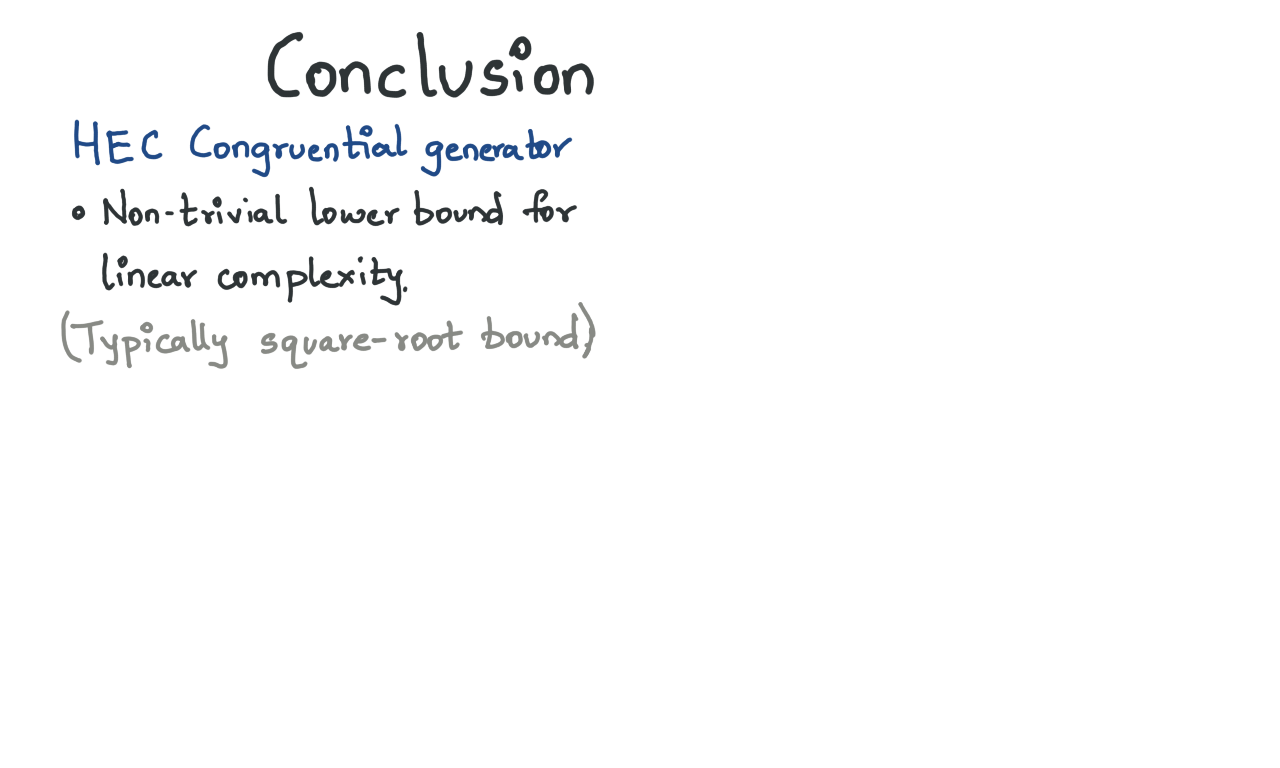 Conclusion
HEC Congruential generator
• Non-trivial lower bound for
linear complexity.
(Typically square-root bound)